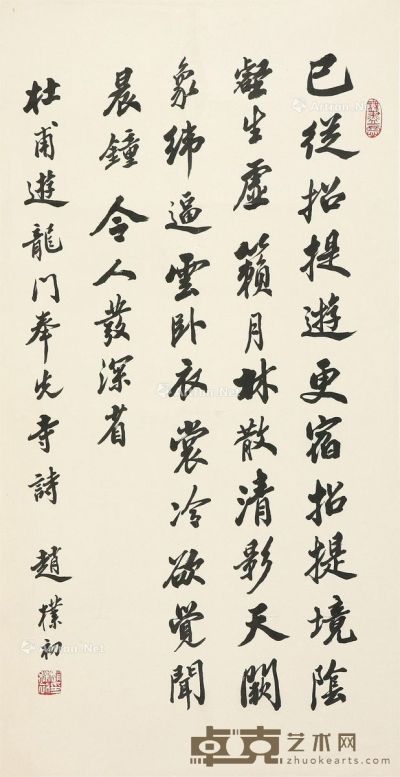 已從招提遊更宿招提境陰
壑生虛籟月林散清影天闕
象緯逼雲卧衣裳冷欲覺聞
晨鐘令人發深省
杜甫遊龍門奉先寺詩 趙樸初
Artron.Net
卓克艺术网
zhuokearts.com